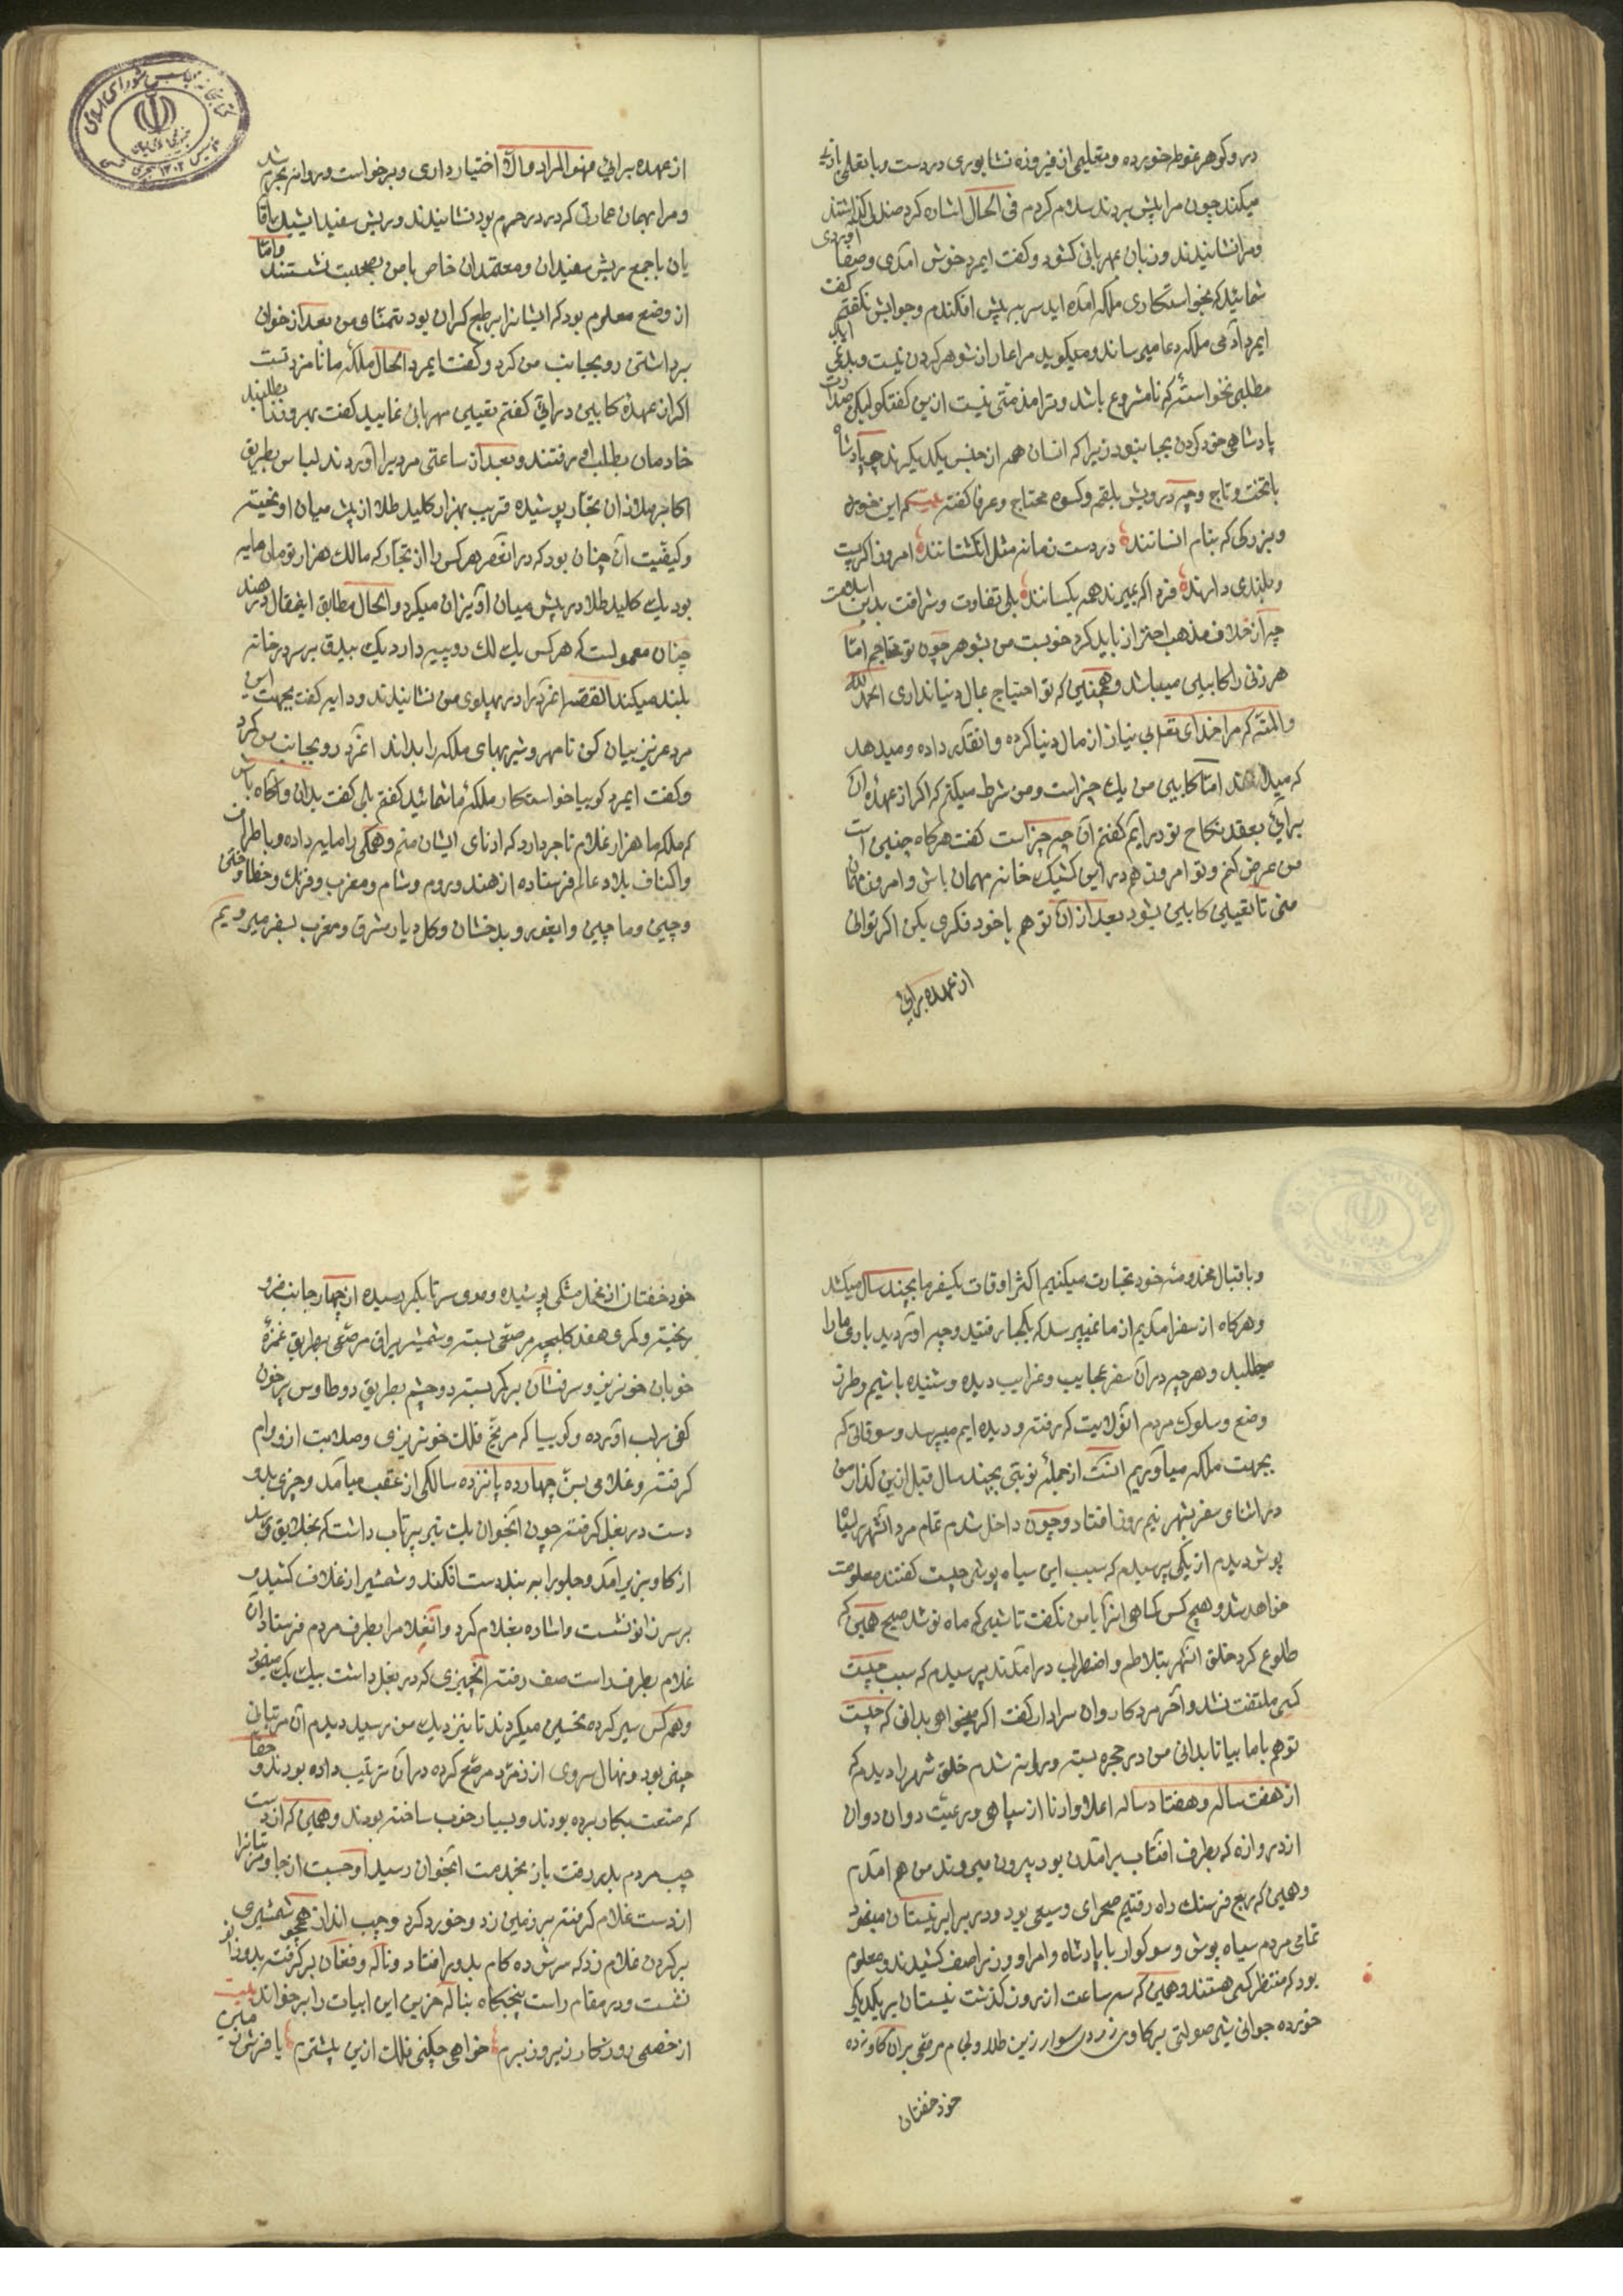 در و گوهر غوطه خورده و تعلیمی از فیروزه نشابوری در دست و با تعلمی بازی
میکند چون مرا پیش بردند سلام کردم فی الحال اشاره کرد صندلی گذاشتند
و مرا نشانیدند و زبان بمهربانی گشود و گفت ایمرد خوش آمدی و صفا آوردی
شمائید که بخواستکاری ملکه آمده اید سر به پیش افکندم و جوابش نگفتم گفت
ایمرد آدمی ملکه دعا میرساند و میگوید مرا عار از شوهر کردن نیست و بدعی
مطلبی نخواسته که نامشروع باشد و ترا مذمتی نیست ازین گفتگو لیکن
پادشاهی خود کردن بجا نبود زیرا که انسان همه از جنس یکدیگرند چه پادشاه
با تخت و تاج و چه درویش بلقمه و کسوه محتاج و عرفا گفته بیت
و بزرگی که بنام انسانند در دست زمانه مثل انگشتانند امروز اگر پست
و بلندی دارند فردا که بمیرند همه یکسانند بلی تفاوت و شرافت بدین اسلامست
چه از خلاف مذهب احتراز باید کرد خوبست من بشوهر چون تو محتاجم امّا
هر زنی را کابینی میباشد و همچنین که تو احتیاج بمال دنیا نداری الحمد لله
والمنّه که مرا خدای تعالی بی نیاز از مال دنیا کرده و آنقدر داده و میدهد
که میدا امّا کابین من یک چیز است و من شرط میکنم که اگر از عهده آن
برائی بعقد نکاح تو درایم گفتم آن چه چیز است گفت هرگاه چنین است
من عرض کنم و تو امروز هم در این کشیک خانه مهمان باش و امروز مهمان
منی تا تعیین کابین بشود بعد از آن تو هم با خود فکری بکن اگر توانی
از عهده برائی
از عهده برائی فهو المراد والا اختیار داری و برخواست و روانه بحرم شد
و مرا بهمان عمارتی که در در حرم بود نشانیدند و ریش سفید ایشیک آقا
یان با جمع ریش سفیدان و معتمدان خاص با من بصحبت نشستند و امّا
از وضع معلوم بود که ایشانرا بر طبع گران بود تمنّا و من بعد از خوان
برداشتن رو بجانب من کرد و گفت ایمرد الحال ملکه ما نامزد تست
اگر از عهده کابین درائی گفتم تعیین مهربانی نمایید گفت بهروز را بطلبید
خادمان بطلب او رفتند و بعد از ساعتی مردیرا آوردند لباس بطریق
اکابر ملازان تجار پوشیده قریب بهزار کلید طلا از پیش میان اویخته
و کیفیت آن چنان بود که در انعصر هر کس را از تجار که مالک هزار تومان مایه
بود یک کلید طلا در پیش میان آویزان میکرد و الحال مطابق اینمقال در هند
چنان معمولست که هر کس یک لک روپیه دارد یک بیدق بر سر در خانه
بلند میکند القصه انمرد را در پهلوی من نشانیدند و دایه گفت بجهت این
مرد عزیز بیان کن تا مهر و شیربهای ملکه را بداند انمرد رو بجانب من کرد
و گفت ایمرد گوییا خواستکار ملکه ما شمائید گفتم بلی گفت بدان و آگاه باش
که ملکه ما هزار غلام تاجر دارد که ادنای ایشان منم و همکی را مایه داده و باطراف
و اکناف بلاد عالم فرستاده از هند و روم و شام و مغرب و فرنک و خطا و ختن
و چین و ماچین و ایغور و بدخشان و کل دیار مشرق و مغرب بسفر میرویم
و باقبال مخدومه خود تجارت میکنیم اکثر اوقات یکسفر ما بچند سال میکشد
و هرکاه از سفر امدیم از ما نمیپرسد که بکجا رفتید و چه اوردید بارها ما را
میطلبد و هر چه در آن سفر عجایب و غرایب دیده و شنیده باشیم و طرز
وضع و سلوک مردم انولایت که رفته و دیده ایم میپرسد و سوقاتی که
بجهت ملکه میآوریم اینست از جمله نوبتی بچند سال قبل ازین گذار من
در اثنای سفر بشهر نیم روز افتاد و چون داخل شدم تمام مرد انشهر را سیاه
پوش دیدم از یکی پرسیدم که سبب این سیاه پوشی چیست گفتند معلومت
خواهد شد و هیچ کس کماهی انرا بامن نگفت تا شبی که ماه نو شد صبح همین که
طلوع کرد خلق انشهر بتلاطم و اضطراب درامدند پرسیدم که سبب چیست
کسی ملتفت نشد و آخر مرد کاروان سرادار گفت اگر میخواهی بدانی که چیست
تو هم باما بیا تا بدانی من در حجره بسته و روانه شدم خلق شهر را دیدم که
از هفت ساله و هفتاد ساله اعلا و ادنا از سپاهی و رعیت دوان دوان
از دروازه که بطرف افتاب برآمدن بود بیرون میروند من هم امدم
و همین که ربع فرسنک راه رفتیم صحرای وسیعی بود و در برابر نیستان مینمود
تمامی مردم سیاه پوش و سوکوار با پادشاه و امرا و وزرا صف کشیدند و معلوم
بود که منتظر کسی هستند و همین که سه ساعت از روز گذشت نیستان بر یکدیگر
خورده جوانی شیر صولتی بر کاوی زردی سوار زین طلا و لجام مرصّعی بران کاو زده
خود خفتان
خود خفتان از مخمل مشکی پوشیده و موی سر تا بکمر رسیده از چهار جانب فرو
ریخته و کمری هفده کلیچه مرصعی بسته و شمشیر یراق مرصّعی بطریق غمزهٔ
خوبان خونریز و سرفشان بر کمر بسته دو چشم بطریق دو طاس پر خون
کف بر لب آورده و گوییا که مریخ فلک خونریزی و صلابت ازو وام
گرفته و غلامی بسن چهارده پانزده سالگی از عقب میآمد و چیزی بدو
دست در بغل گرفته چون انجوان یک تیر پرتاب داشت که بخلایق رسد
از کاو بزیر امد و جلو را به بند دست افکند و شمشیر از غلاف کشید و
بر سر زانو نشست و اشاره بغلام کرد و انغلام را بطرف مردم فرستاد ان
غلام بطرف راست صف رفته انچیزی که در بغل داشت بیک یک مینمود
و همه کس سیر کرده تحسین میکردند تا بنزدیک من رسید دیدم آن مرتبانی
چینی بود و نهال سروی از زمرّد مرصّع کرده در آن ترتیب داده بودند و حقّا
که صنعت بکار برده بودند و بسیار خوب ساخته بودند و همین که از دست
چپ مردم بدر رفت باز بخدمت انجوان رسید او جست از جا و مرتبانرا
از دست غلام گرفته بر زمین زد و خورد کرد و چپ انداز همچو شمشیری
بر گردن غلام زد که سرش ده کام بدور افتاد و ناله و فغان بر گرفته بدو زانو
نشست و در مقام راست پنجگاه بناله حزین این ابیات را بر خواند بیت
از خصمی روزگار زیر و زبرم خواهی چکنی فلک ازین بیشترم یا فرش